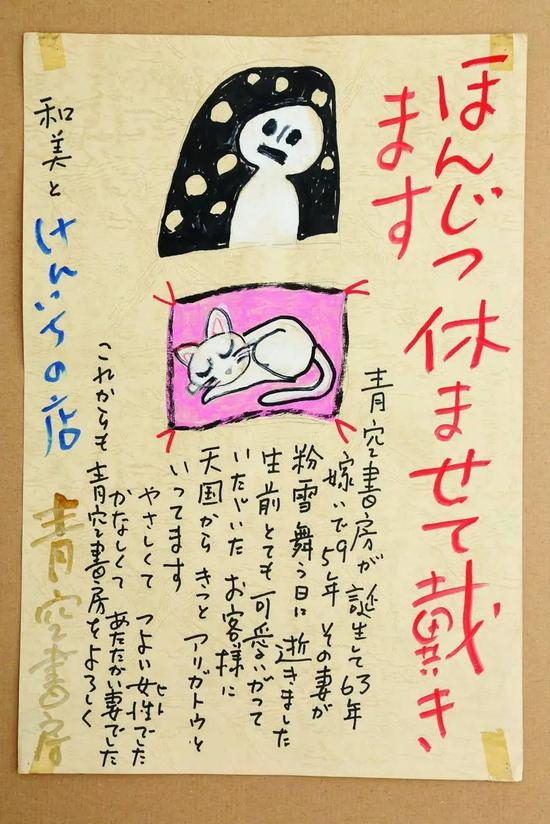 ほんじつ休ませて戴き
ます
青空書房が誕生して63年
嫁いで95年 その妻が
粉雪舞う日に 逝きました
生前とても可愛いがって
いただいた お客様に
天国から きっと アリガトウと
いってます
やさしくて つよい女性でした
ヒト
かなしくて あたたかい妻でした
これからも 青空書房をよろしく
和美と けんいちの店
青空書房